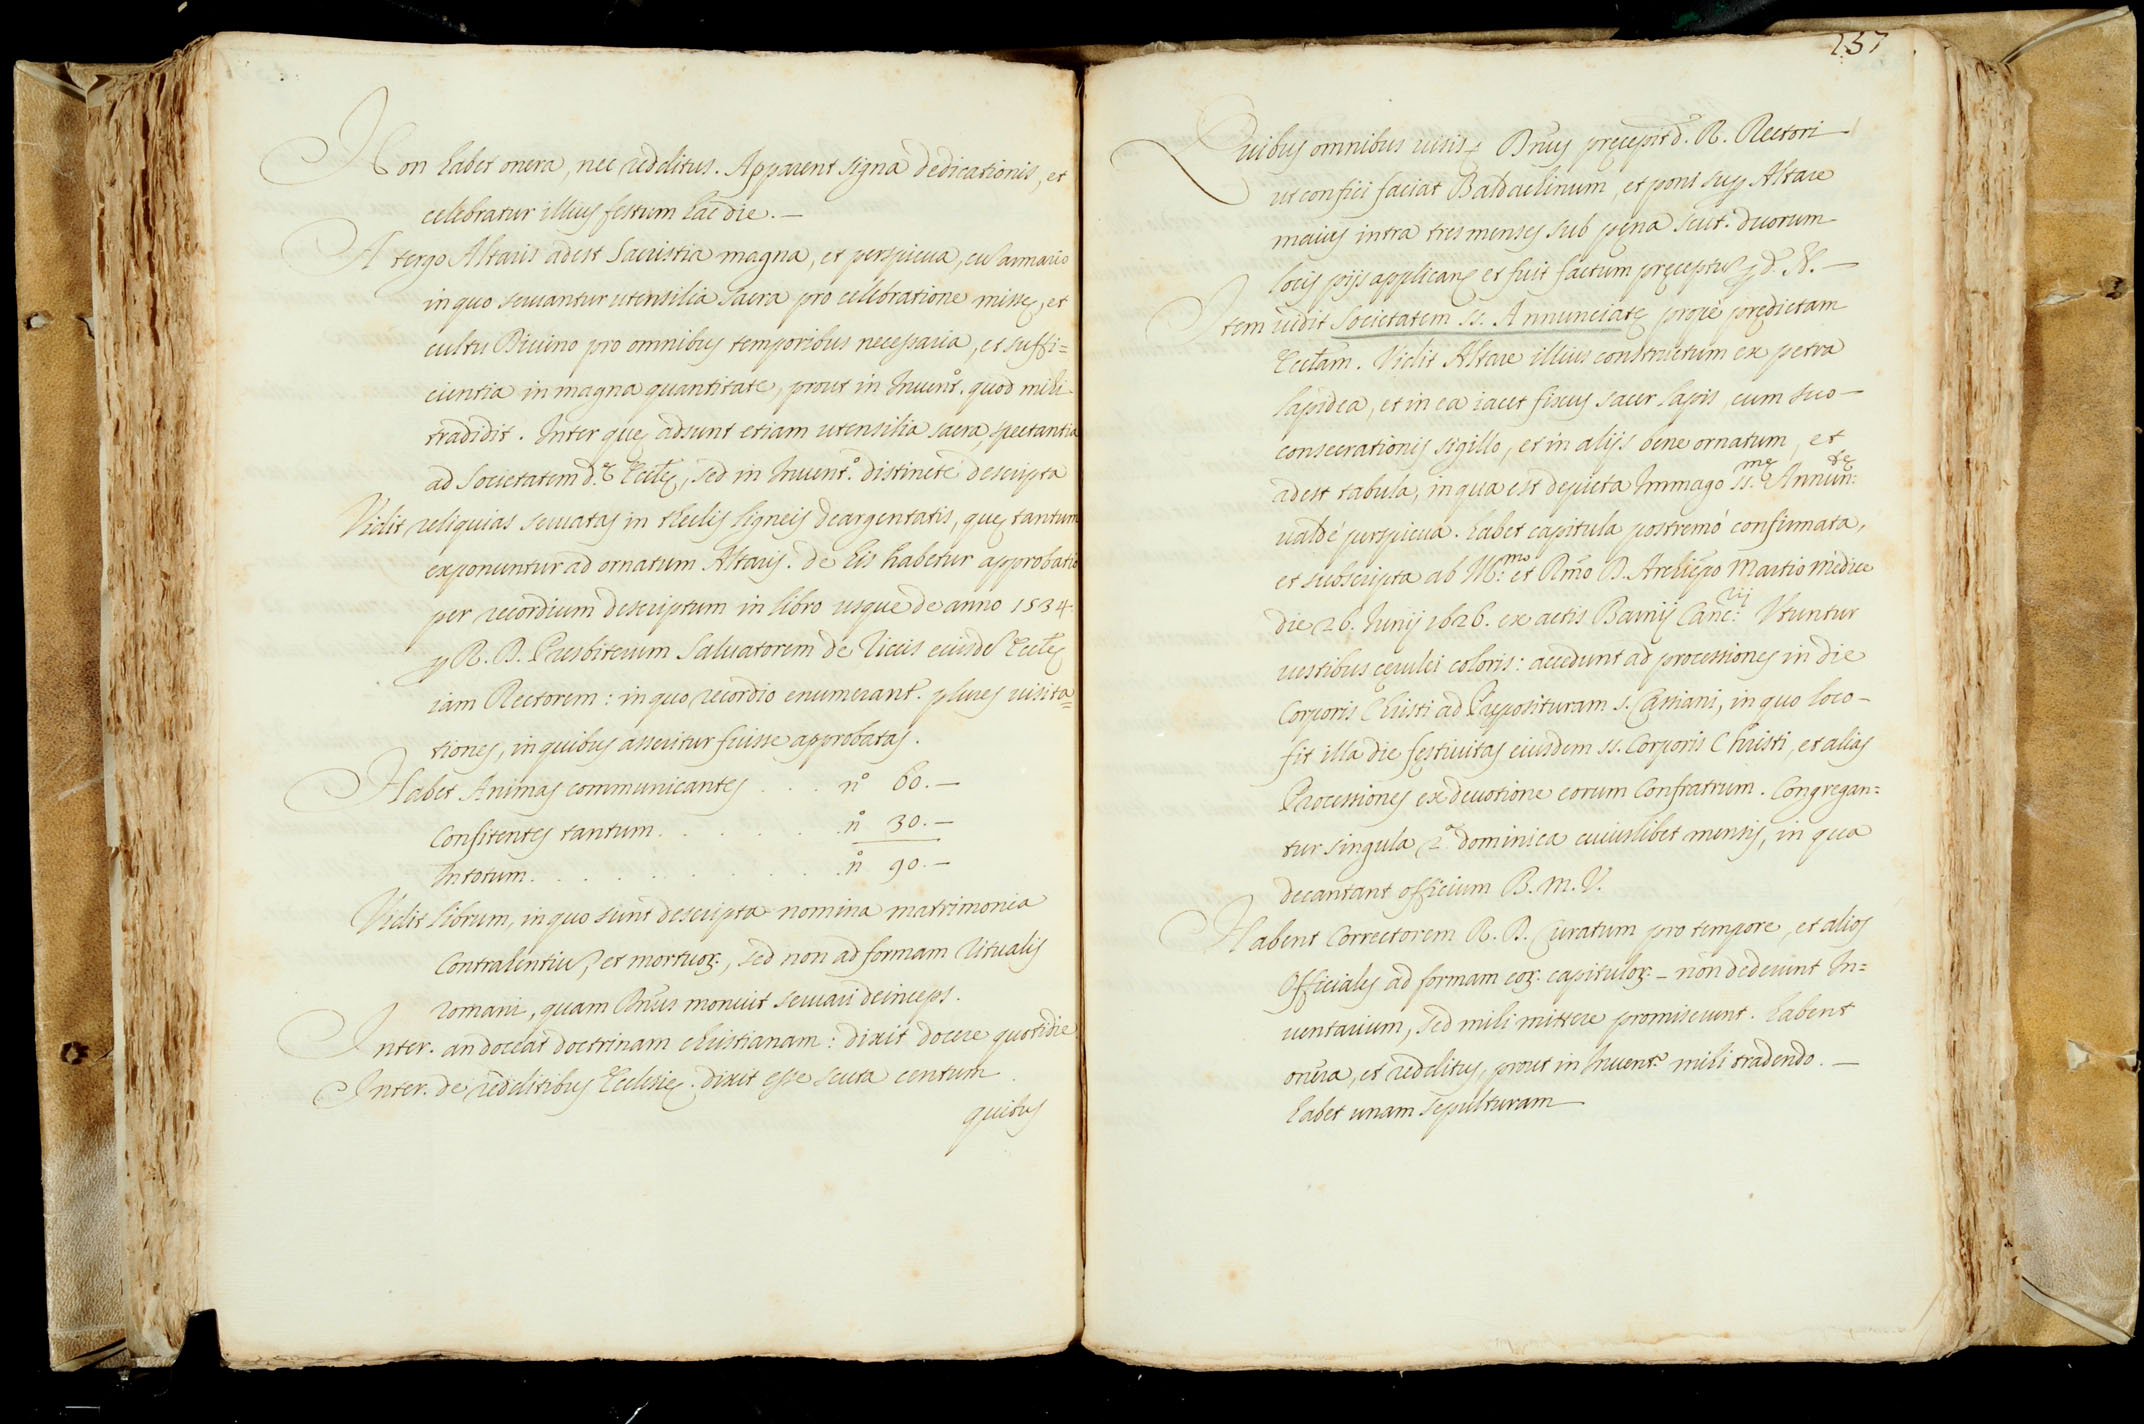 Non habet onera, nec redditus. Apparent signa dedicationis, et
celebratur illius festum hac die. —
A tergo Altaris adest Sacristia magna, et perspicua, cū armario
in quo servantur utensilia sacra pro celebratione missę, et
cultu Divino pro omnibus temporibus necessaria, et suffi=
cientia in magna quantitate, prout in Invent.º quod mihi
tradidit. Inter quę adsunt etiam utensilia sacra, spectantia
ad Societatem d.ę Eccłę, sed in Invent.º distincte descripta
Vidit reliquias servatas in thecis ligneis deargentatis, quę tantum
exponuntur ad ornatum Altaris. de his habetur approbatio
per recordium descriptum in libro usque de anno 1534.
p R. D. Presbiterum Salvatorem de Ticcis eiusdē Eccłę
iam Rectorem: in quo recordio enumerant.r plures visita=
tiones, in quibus asseritur fuisse approbatas.
Habet Animas communicantes . . . nº 60. —
Confitentes tantum . . . . . . nº 30. —
In totum . . . . . . . . . nº 90. —
Vidit librum, in quo sunt descripta nomina matrimonia
Contrahentiū, et mortuoꝝ, sed non ad formam Ritualis
romani, quam Dn̄us monuit servari deinceps.
Inter. an doceat doctrinam christianam: dixit docere quotidie
Inter. de redditibus Ecclesię. dixit esse scuta centum
quibus
257
Quibus omnibus visis, Dn̄us pręcepit d. R. Rectori
ut confici faciat Baldachinum, et poni sup Altare
maius intra tres menses sub pęna scut. duorum
locis pijs applicand et fuit factum pręceptū p d. N. —
Item vidit Societatem ss. Annunciatę propè prędictam
Eccłam. Vidit Altare illius constructum ex petra
lapidea, et in ea iacet fixus sacer lapis, cum suo —
consecrationis sigillo, et in alijs bene ornatum, et
adest tabula, in qua est depicta Immago ss.mę Annun:tę
valdé perspicua. habet capitula postremó confirmata,
et subscripta ab Ill:mo et Rm̄o D. Archiepo Martio medice
die 26. Junij 1626. ex actis Barnij Canc:rij Utuntur
vestibus cęrulei coloris: accedunt ad processiones in die
Corporis Christi ad Pręposituram S. Cassiani, in quo loco —
fit illa die festivitas eiusdem ss. Corporis Christi, et alias
Processiones ex devotione eorum Confratrum. Congregan=
tur singula 2.ª dominica cuiuslibet mensis, in qua
decantant officium B. M. V.
Habent Correctorem R. D. Curatum pro tempore, et alios
Officiales ad formam eoꝝ capituloꝝ — non dederunt In=
ventarium, sed mihi mittere promiserunt. habent
onera, et redditus, prout in Invent.º mihi tradendo. —
habet unam sepulturam —